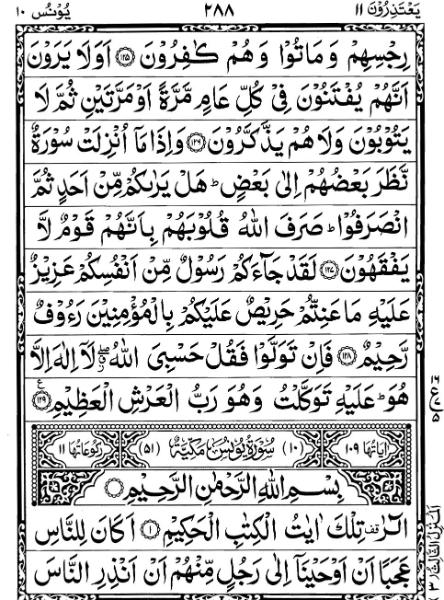 يَعْتَذِرُوْنَ ١١ ٢٨٨ يُوْنُس ١٠
رِجْسِهِمْ وَمَاتُوْا وَهُمْ كٰفِرُوْنَ ﴿١٢٥﴾ اَوَلَا يَرَوْنَ
اَنَّهُمْ يُفْتَنُوْنَ فِىْ كُلِّ عَامٍ مَّرَّةً اَوْ مَرَّتَيْنِ ثُمَّ لَا
يَتُوْبُوْنَ وَلَا هُمْ يَذَّكَّرُوْنَ ﴿١٢٦﴾ وَاِذَا مَاۤ اُنْزِلَتْ سُوْرَةٌ
نَّظَرَ بَعْضُهُمْ اِلٰى بَعْضٍ ؕ هَلْ يَرٰىكُمْ مِّنْ اَحَدٍ ثُمَّ
انْصَرَفُوْا ؕ صَرَفَ اللّٰهُ قُلُوْبَهُمْ بِاَنَّهُمْ قَوْمٌ لَّا
يَفْقَهُوْنَ ﴿١٢٧﴾ لَقَدْ جَآءَكُمْ رَسُوْلٌ مِّنْ اَنْفُسِكُمْ عَزِيْزٌ
عَلَيْهِ مَا عَنِتُّمْ حَرِيْصٌ عَلَيْكُمْ بِالْمُؤْمِنِيْنَ رَءُوْفٌ
رَّحِيْمٌ ﴿١٢٨﴾ فَاِنْ تَوَلَّوْا فَقُلْ حَسْبِىَ اللّٰهُ ۖ لَاۤ اِلٰهَ اِلَّا
هُوَ ؕ عَلَيْهِ تَوَكَّلْتُ وَهُوَ رَبُّ الْعَرْشِ الْعَظِيْمِ ﴿١٢٩﴾
اٰيَاتُهَا ١٠٩ (١٠) سُوْرَةُ يُوْنُسَ مَكِّيَّةٌ (٥١) رُكُوْعَاتُهَا ١١
بِسْمِ اللّٰهِ الرَّحْمٰنِ الرَّحِيْمِ
الٓرٰ قف تِلْكَ اٰيٰتُ الْكِتٰبِ الْحَكِيْمِ ﴿١﴾ اَكَانَ لِلنَّاسِ
عَجَبًا اَنْ اَوْحَيْنَاۤ اِلٰى رَجُلٍ مِّنْهُمْ اَنْ اَنْذِرِ النَّاسَ
اَلْمَنْزِلُ الثَّالِثُ ٣